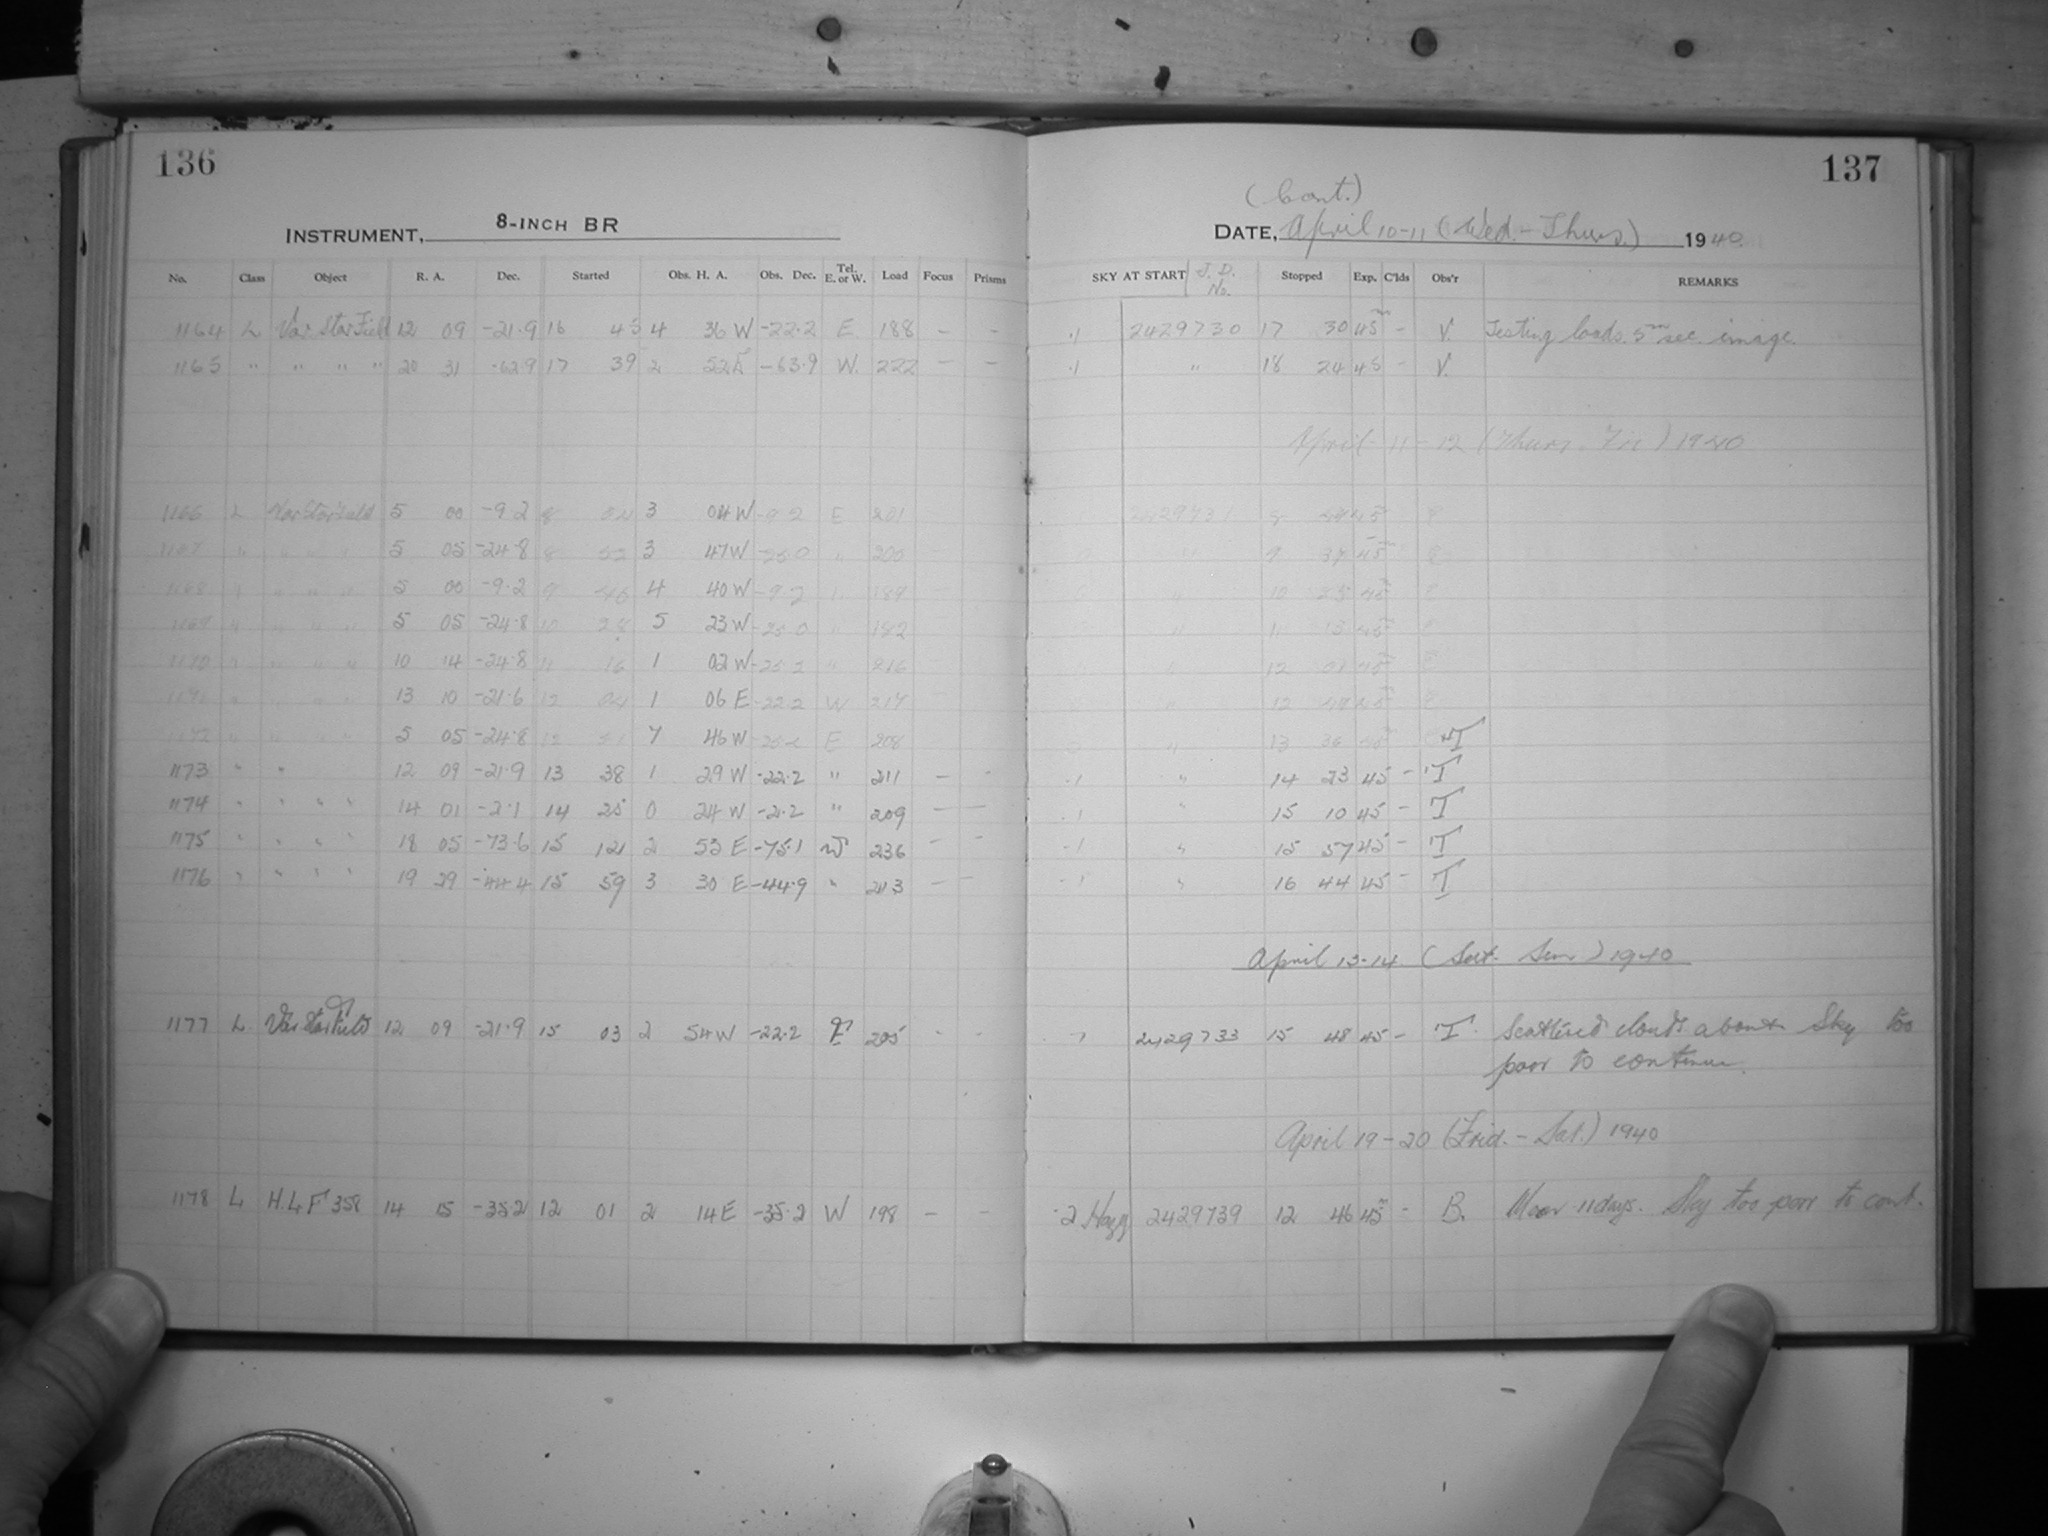 136
137
INSTRUMENT, 8-INCH BR
(Cont.)
DATE, April 10-11 (Wed. - Thurs.) 1940
No. Class Object R. A. Dec. Started Obs. H. A. Obs. Dec. Tel. E. or W. Load Focus Prisms SKY AT START J. D. No. Stopped Exp. C'lds Obs'r REMARKS
1164 L Var Star Field 12 09 -21.9 16 45 4 36 W -22.2 E. 188 - - .1 2429730 17 30 45m - V. Testing loads. 5m sec. image.
1165 " " " " 20 31 -62.9 17 39 2 52 E -63.9 W. 222 - - .1 " 18 24 45 - V.
April 11-12 (Thurs - Fri) 1940
1166 L Var Star Field 5 00 -9.2 8 3 04 W -9.2 E 201 2429731 45
1167 " " " " 5 05 -24.8 8 52 3 47 W -25.0 " 200 " 9 37 45
1168 " " " " 5 00 -9.2 9 46 4 40 W -9.2 189 " 10 45
1169 " " " " 5 05 -24.8 10 28 5 23 W -25.0 " 182 " 11 13 45
1170 " " " " 10 14 -24.8 11 16 1 02 W " 216 " 12 01 45
1171 " " " " 13 10 -21.6 12 04 1 06 E -22.2 W 217 " 12 45
1172 " " " " 5 05 -24.8 12 51 7 46 W E 208 " 13 36 45 T
1173 " " 12 09 -21.9 13 38 1 29 W -22.2 " 211 - - .1 " 14 23 45 - T
1174 " " " " 14 01 -2.1 14 25 0 24 W -2.2 " 209 - - .1 " 15 10 45 - T
1175 " " " " 18 05 -73.6 15 12 2 53 E -75.1 W 236 - - .1 " 15 57 45 - T
1176 " " " " 19 29 -44.4 15 59 3 30 E -44.9 " 213 - - .1 " 16 44 45 - T
April 13-14 (Sat. Sun) 1940
1177 L. Var Star Field 12 09 -21.9 15 03 2 54 W -22.2 E 205 - - 2429733 15 48 45 - T. Scattered clouds about Sky too
poor to continue.
April 19-20 (Frid. - Sat.) 1940
1178 L H.L.F 358 14 15 -35.2 12 01 2 14 E -35.2 W 198 - - .2 Hazy 2429739 12 46 45m - B. Moon 11 days. Sky too poor to cont.